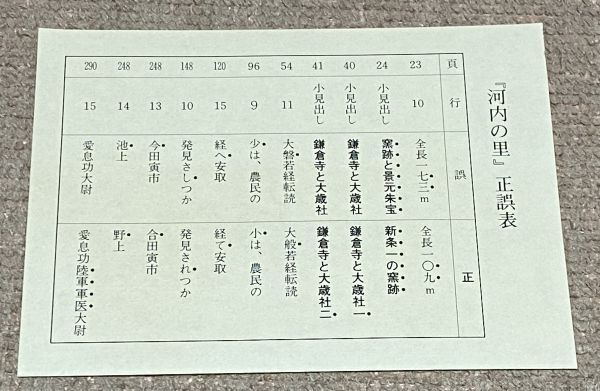 『河内の里』正誤表
頁 行 誤 正
23 10 全長一七三m 全長一〇九m
24 小見出し 窯跡と景元朱宝 新条一の窯跡
40 小見出し 鎌倉寺と大歳社 鎌倉寺と大歳社一
41 小見出し 鎌倉寺と大歳社 鎌倉寺と大歳社二
54 11 大磐若経転読 大般若経転読
96 9 少は、農民の 小は、農民の
120 15 経へ安取 経て安取
148 10 発見さしつか 発見されつか
248 13 今田寅市 合田寅市
248 14 池上 野上
290 15 愛息功大尉 愛息功陸軍軍医大尉